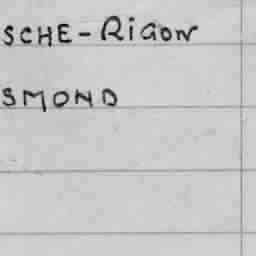 SCHE-Rigon
SMOND